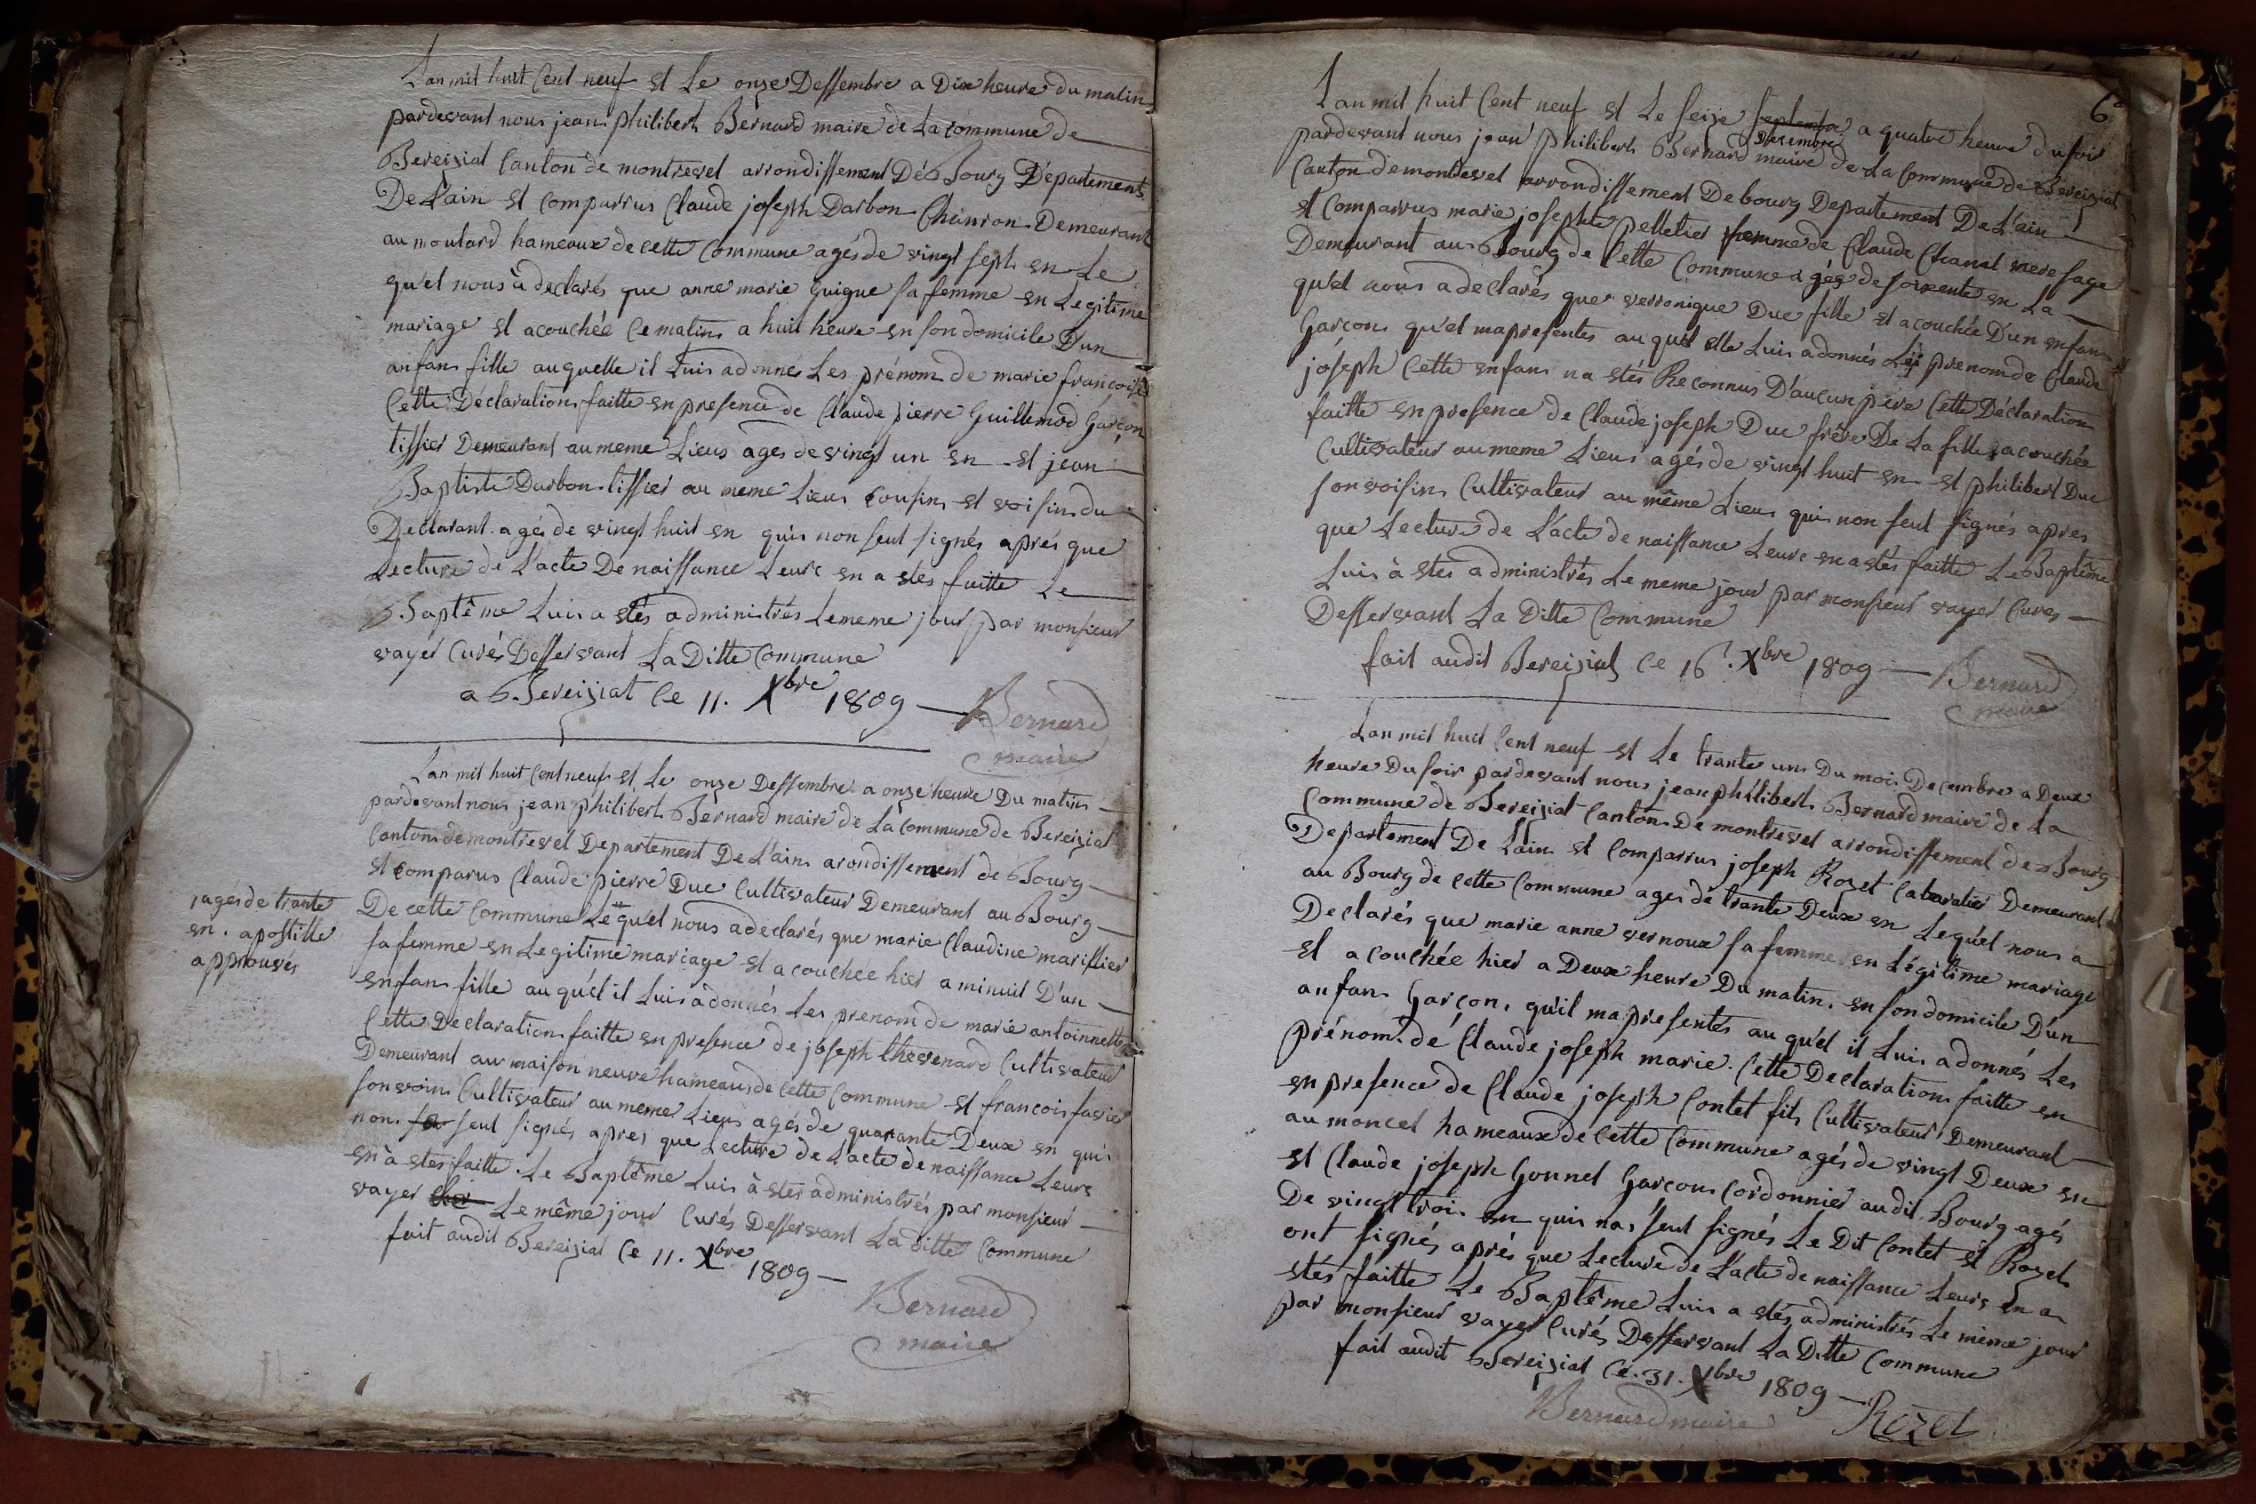 L'an mil huit Cent neuf et Le onze Dessembre a Dix heure du matin
pardevant nous jean philibert Bernard maire de La commune de
Bereiziat Canton de montrevel arrondissement Dé Bourg Département
De L'ain et comparrus Claude joseph Darbon Chanron Demeurant
au moulard hameaux de cette Commune agés de vingt sept en Le
qu'el nous à declarés que anne marie Guigue sa femme en Legitime
mariage et acouchée Ce matin a huit heure en son domicile D'un
anfan fille auquelle il Luis adonnés Les prénom de marie françoise
Cette Déclaration faitte en presence de Claude pierre Guillemod Garçon
tissier Demeurant au meme Lieus ages de vingt un en et jean
Baptiste Darbon tissier au meme Lieus Cousin et voisin du
Declarant agés de vingt huit en quis non seut signés aprés que
Lecture de L'acte De naissance Leurs en a etés faitte Le
Baptême Luis a etés administrés Le meme jour par monsieur
vayer Curés Desservant La Ditte Commune
a Bereiziat Ce 11. Xbre 1809
Bernard
maire
L'an mil huit Cent neuf et Le onze Dessembre a onze heure Du matin
pardevant nous jean philibert Bernard maire de La commune de Bereiziat
Canton de montrevel Departement De L'ain arondissement de Bourg
et comparus Claude pierre Duc Cultivateur Demeurant au Bourg
De cette Commune Le qu'el nous a declarés que marie Claudine mariller
sa femme en Legitime mariage et acouchée hier a minuit D'un
enfan fille au qu'él il Luis àdonnés Les prenom de marie antoinnette
Cette Declaration faitte en presence de joseph thevenard Cultivateur
Demeurant aux maison neuve hameau de cette Commune et francois favier
son voin Cultivateur au meme Lieus agés de quarante Deux en quis
non se seut signés apres que Lecture de L'acte de naissance Leurs
en à etes faitte. Le Baptême Luis à etes administrés par monsieur
vayer Le même jour Curés Desservant La ditte Commune
fait audit Bereiziat Ce 11. Xbre 1809
Bernard
maire
agés de trante
en. apostille
approuvés
6
L'an mil huit Cent neuf et Le seize septembre a quatre heure du soir
Dexembre
pardevant nous jean philibert Bernard maire de La Commune de Bereiziat
Canton de montrevel arrondissement De bourg Departement De L'ain
et Comparrus marie josephte pelletier femme de Claude Chanal mere sage
Demeurant au Bourg de Cette Commune agés de soixente en La
qu'el nous a declarés que verronique Duc fille et acouchée D'un enfan
Garçon qu'el ma presentes au quel elle Luis a donnés Les prenom de Claude
joséph Cette enfan na etés Reconnus D'aucun pere Cette Déclaration
faitte en presence de Claude joseph Duc frère De La fille acouchée
Cultivateur au meme Lieus agés de vingt huit en et philibert Duc
son voisin Cultivateur au même Lieus quis non seut signés apres
que Lecture de L'acte de naissance Leurs en a etés faitte Le Baptême
Luis à etes administrés Le meme jour par monsieur vayer Cures
Desservant La Ditte Commune
fait audit Bereiziat Ce 16. Xbre 1809
Bernard
maire
L'an mil huit Cent neuf et Le trante un Du mois Decembre a Deux
heure Du soir pardevant nous jean philibert Bernard maire de La
Commune de Bereiziat Canton De montrevel arrondissement de Bourg
Departement De L'ain et Comparrus joseph Rozet Cabaratier Demeurant
au Bourg de cette Commune ages de trante Deux en Lequ'el nous a
Declarés que marie anne vernoux sa femme en Légitime mariage
et acouchée hier a Deux heure Du matin en son domicile D'un
anfan Garçon qu'il ma presentés au qu'el il Luis a donnés Les
prénom de Claude joseph marie. Cette Declaration faitte en
en presence de Claude joseph Contet fils Cultivateur Demeurant
au moncel hameaux de Cette Commune agés de vingt Deux en
et Claude joseph Gonnel Garçon Cordonnier audit Bourg agés
De vingt trois en quis nas seut signés Le Dit Contet et Rozet
ont signés aprés que Lecture de L'acte de naissance Leurs en a
etés faitte Le Baptême Luis a etés administrés Le même jour
par monsieur vayer Curés Desservant La Ditte Commune
fait audit Bereiziat Ce. 31. Xbre 1809
Bernard maire
Rozet